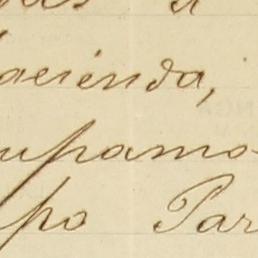 hacienda,
upamo-
po Par